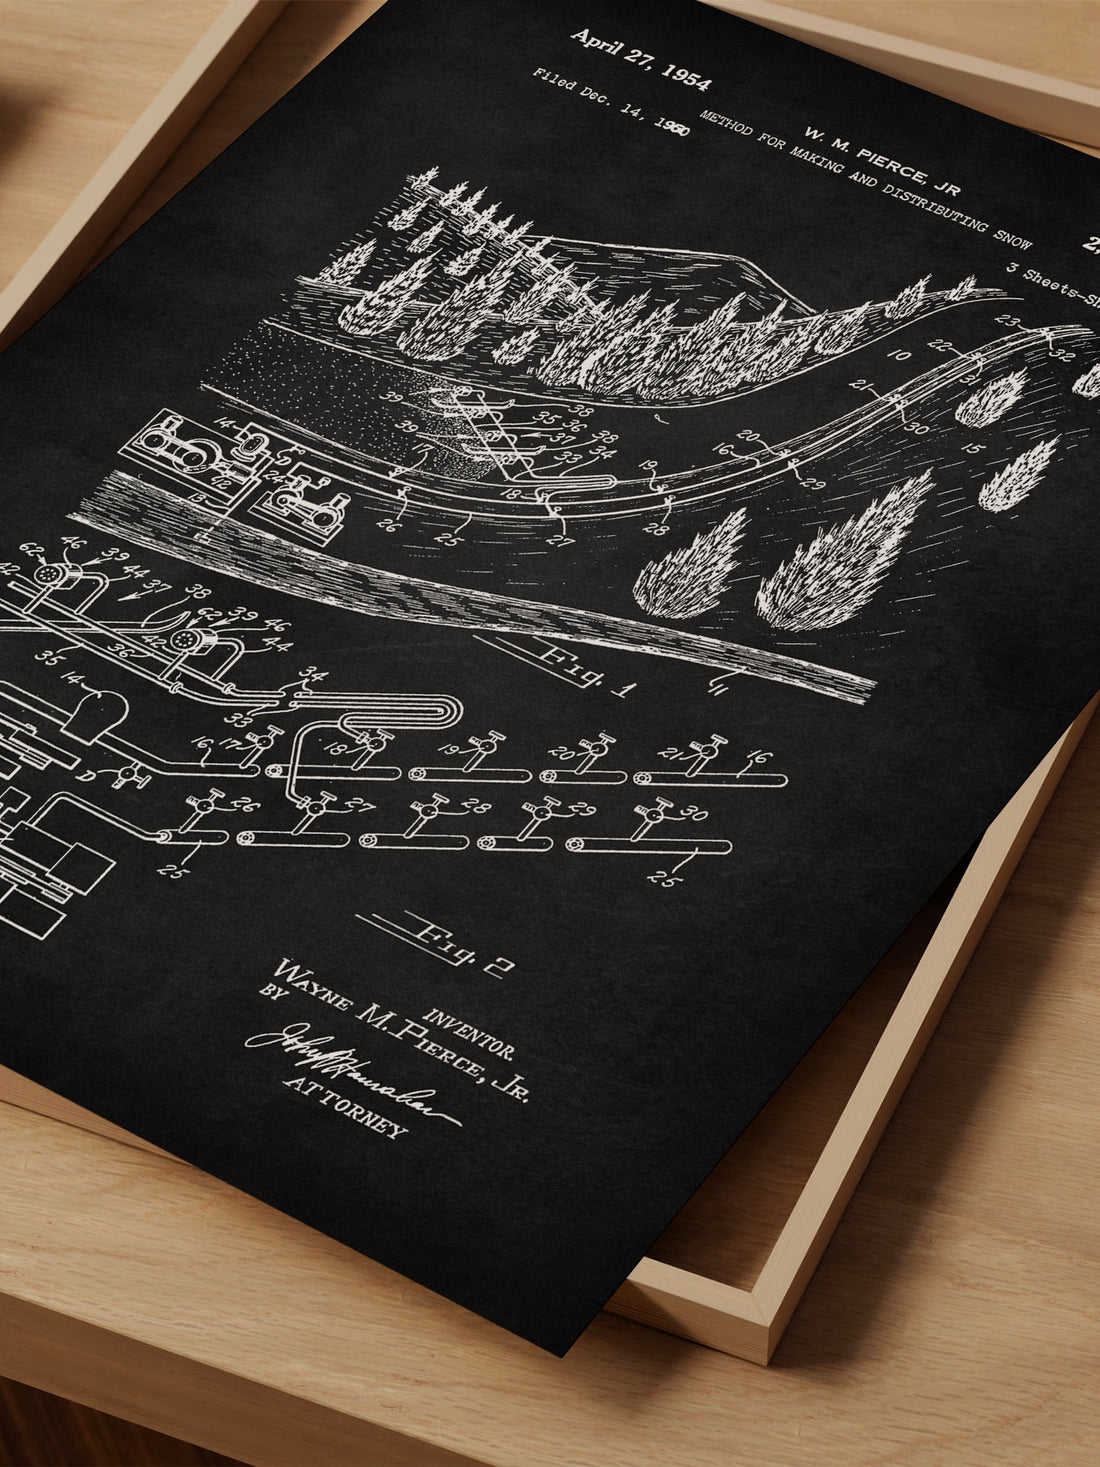 April 27, 1954
W. M. PIERCE, JR
Filed Dec. 14, 1950
METHOD FOR MAKING AND DISTRIBUTING SNOW
2,
3 Sheets-Sh
23
32
22
10
31
21
30
15
39
38
35
36
37
38
39
33
34
20
16
19
29
18
28
14
D
24
12
13
26
25
27
Fig. 1
11
62
46
39
44
42
37
38
62
39
46
44
42
35
36
34
33
14
16
17
18
19
20
21
16
D
26
27
28
29
30
25
25
Fig. 2
INVENTOR.
WAYNE M. PIERCE, JR.
BY
ATTORNEY